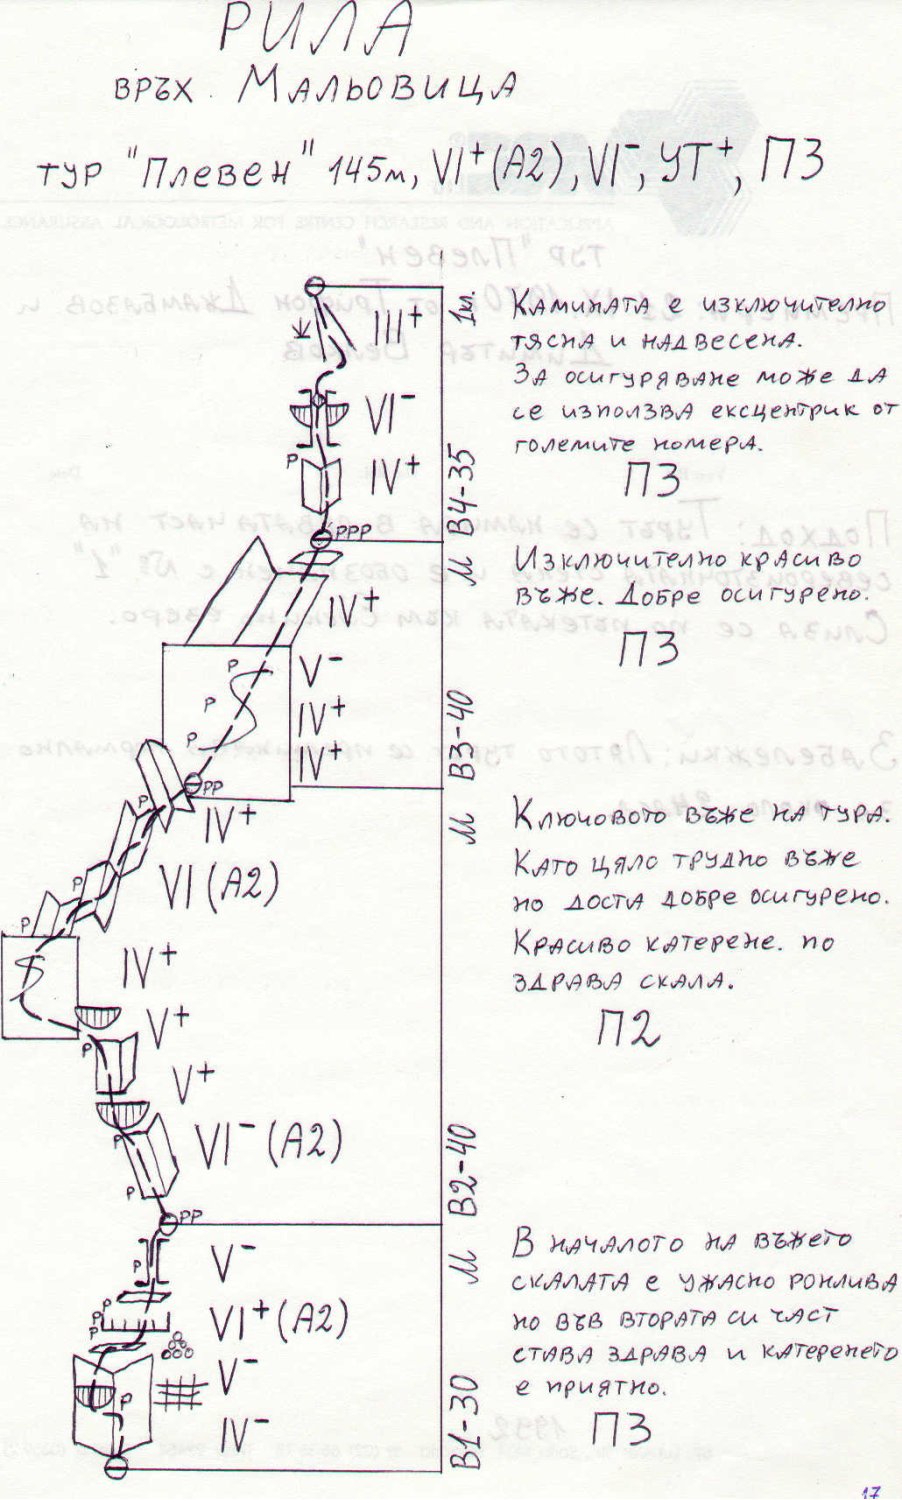 РИЛА
ВРЪХ МАЛЬОВИЦА
ТУР "ПЛЕВЕН" 145м, VI+ (A2), VI-, УТ+, П3
1кл.
III+
КАМИНАТА Е ИЗКЛЮЧИТЕЛНО
ТЯСНА И НАДВЕСЕНА.
ЗА ОСИГУРЯВАНЕ МОЖЕ ДА
СЕ ИЗПОЛЗВА ЕКСЦЕНТРИК ОТ
ГОЛЕМИТЕ НОМЕРА.
П3
VI-
P
IV+
В4-35 м
PPP
ИЗКЛЮЧИТЕЛНО КРАСИВО
ВЪЖЕ. ДОБРЕ ОСИГУРЕНО.
П3
IV+
P
V-
P
IV+
P
IV+
В3-40 м
PP
КЛЮЧОВОТО ВЪЖЕ НА ТУРА.
КАТО ЦЯЛО ТРУДНО ВЪЖЕ
НО ДОСТА ДОБРЕ ОСИГУРЕНО.
КРАСИВО КАТЕРЕНЕ. ПО
ЗДРАВА СКАЛА.
П2
P
IV+
P
VI (A2)
P
IV+
V+
P
V+
P
VI- (A2)
P
В2-40 м
PP
В НАЧАЛОТО НА ВЪЖЕТО
СКАЛАТА Е УЖАСНО РОНЛИВА
НО ВЪВ ВТОРАТА СИ ЧАСТ
СТАВА ЗДРАВА И КАТЕРЕНЕТО
Е ПРИЯТНО.
П3
P
V-
P
P
P
VI+ (A2)
V-
P
IV-
В1-30
17